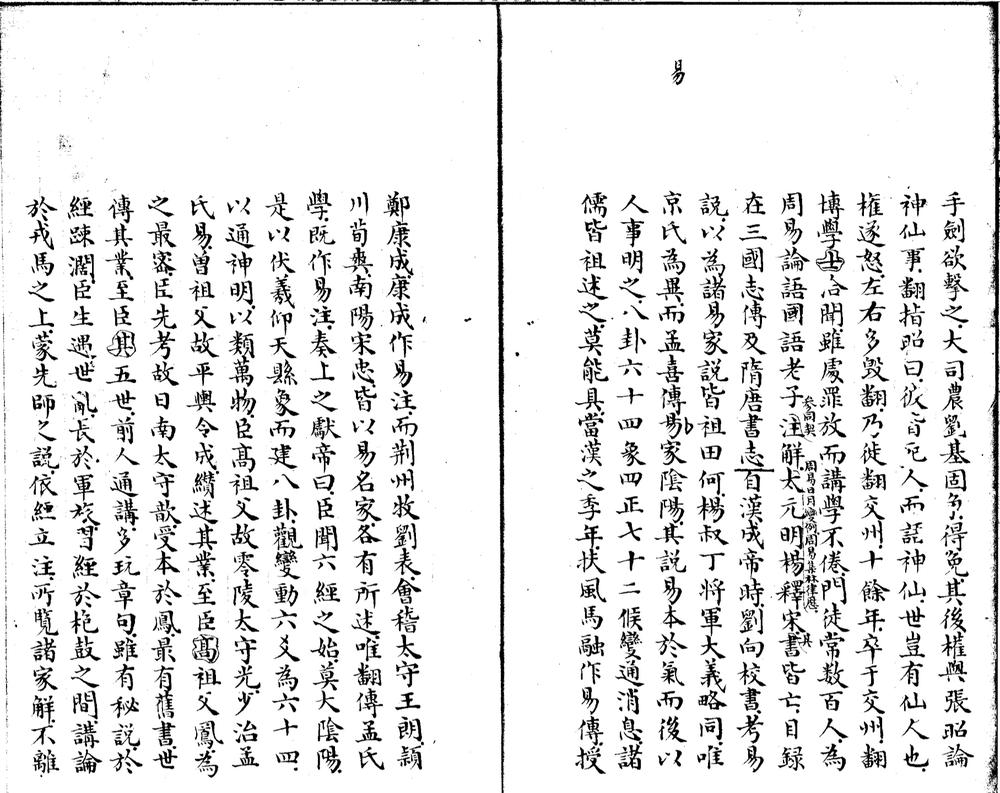 易
手劍欲擊之大司農劉基固爭得免其後權與張昭論
神仙事翻指昭曰彼皆死人而話神仙世豈有仙人也
權遂怒左右多毀翻乃徙翻交州十餘年卒于交州翻
博學士洽聞雖處罪放而講學不倦門徒常数百人為
周易論語國語老子參同契注解太元明楊釋宋周易日月變例周易集林律厯其書皆亡目録
在三國志傳及隋唐書志自漢成帝時劉向校書考易
説以為諸易家説皆祖田何楊叔丁將軍大義略同唯
京氏為異而孟喜傳易家陰陽其説易本於氣而後以
人事明之八卦六十四象四正七十二候變通消息諸
儒皆祖述之莫能具當漢之季年扶風馬融作易傳授
鄭康成康成作易注而荆州牧劉表會稽太守王朗潁
川荀爽南陽宋忠皆以易名家各有所述唯翻傳孟氏
學既作易注奏上之獻帝曰臣聞六經之始莫大陰陽
是以伏羲仰天縣象而建八卦觀變動六爻為六十四
以通神明以類萬物臣高祖父故零陵太守光少治孟
氏易曾祖父故平輿令成纘述其業至臣高祖父鳳為
之最審臣先考故日南太守歆受本於鳳最有舊書世
傳其業至臣其五世前人通講多玩章句雖有秘説於
經踈濶臣生遇世亂長於軍旅習經於枹鼓之間講論
於戎馬之上蒙先師之説依經立注所覽諸家解不離